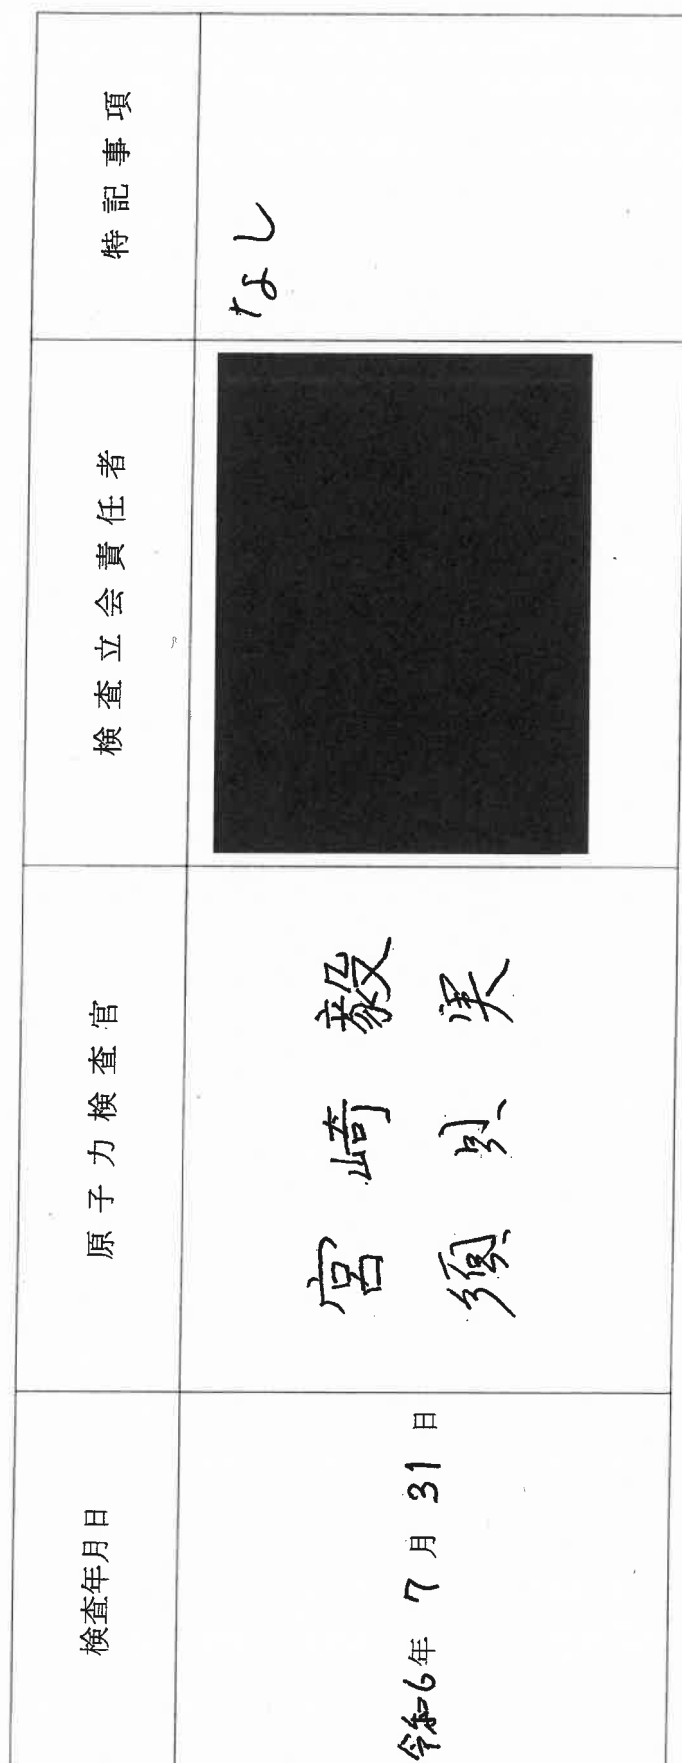 検査年月日
原子力検査官
検査立会責任者
特記事項
令和6年7月31日
宮崎 毅
須貝 実
なし